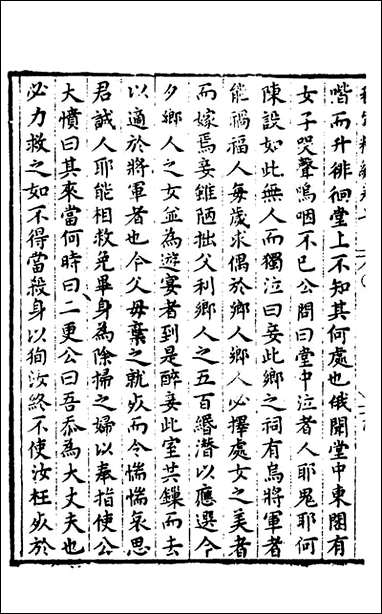 階而升徘徊堂上不知其何處也俄聞堂中東閣有
女子哭聲嗚咽不已公問曰堂中泣者人耶鬼耶何
陳設如此無人而獨泣曰妾此鄉之祠有烏將軍者
能禍福人每歲求偶於鄉人鄉人必擇處女之美者
而嫁焉妾雖陋拙父利鄉人之五百緡潛以應選今
夕鄉人之女並為遊宴者到是醉妾此室共鏁而去
以適於將軍者也今父母棄之就死而令惴惴哀思
君誠人耶能相救免畢身為除掃之婦以奉指使公
大憤曰其來當何時曰二更公曰吾忝為大丈夫也
必力救之如不得當殺身以狥汝終不使汝枉死於